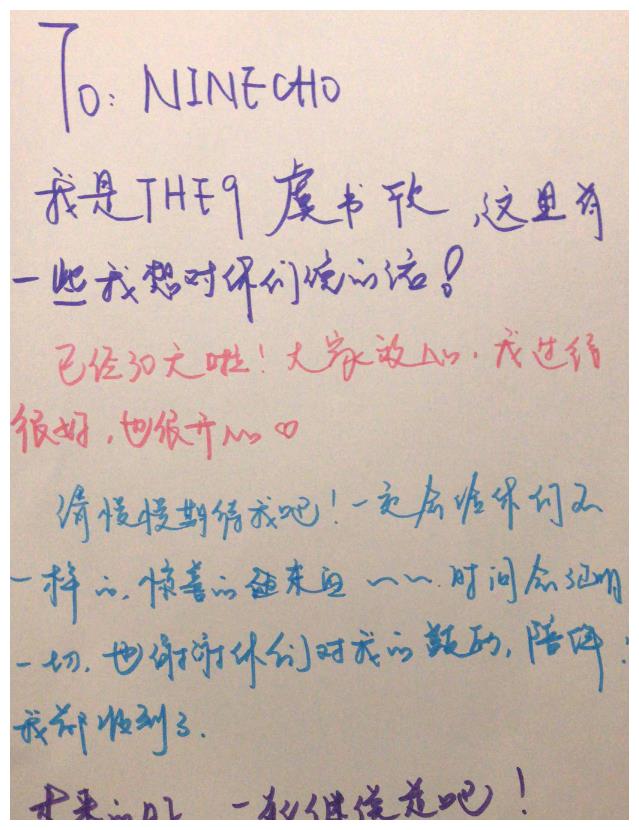 To: NINECHO
我是THE9 虞书欣,这里有
一些我想对你们说的话!
已经30天啦!大家放心,我过得
很好,也很开心♡
请慢慢期待我吧!一定会给你们不
一样的,惊喜的 时间会证明
一切,也谢谢你们对我的鼓励,陪伴:
我都收到了.
未来的 一起继续走吧!